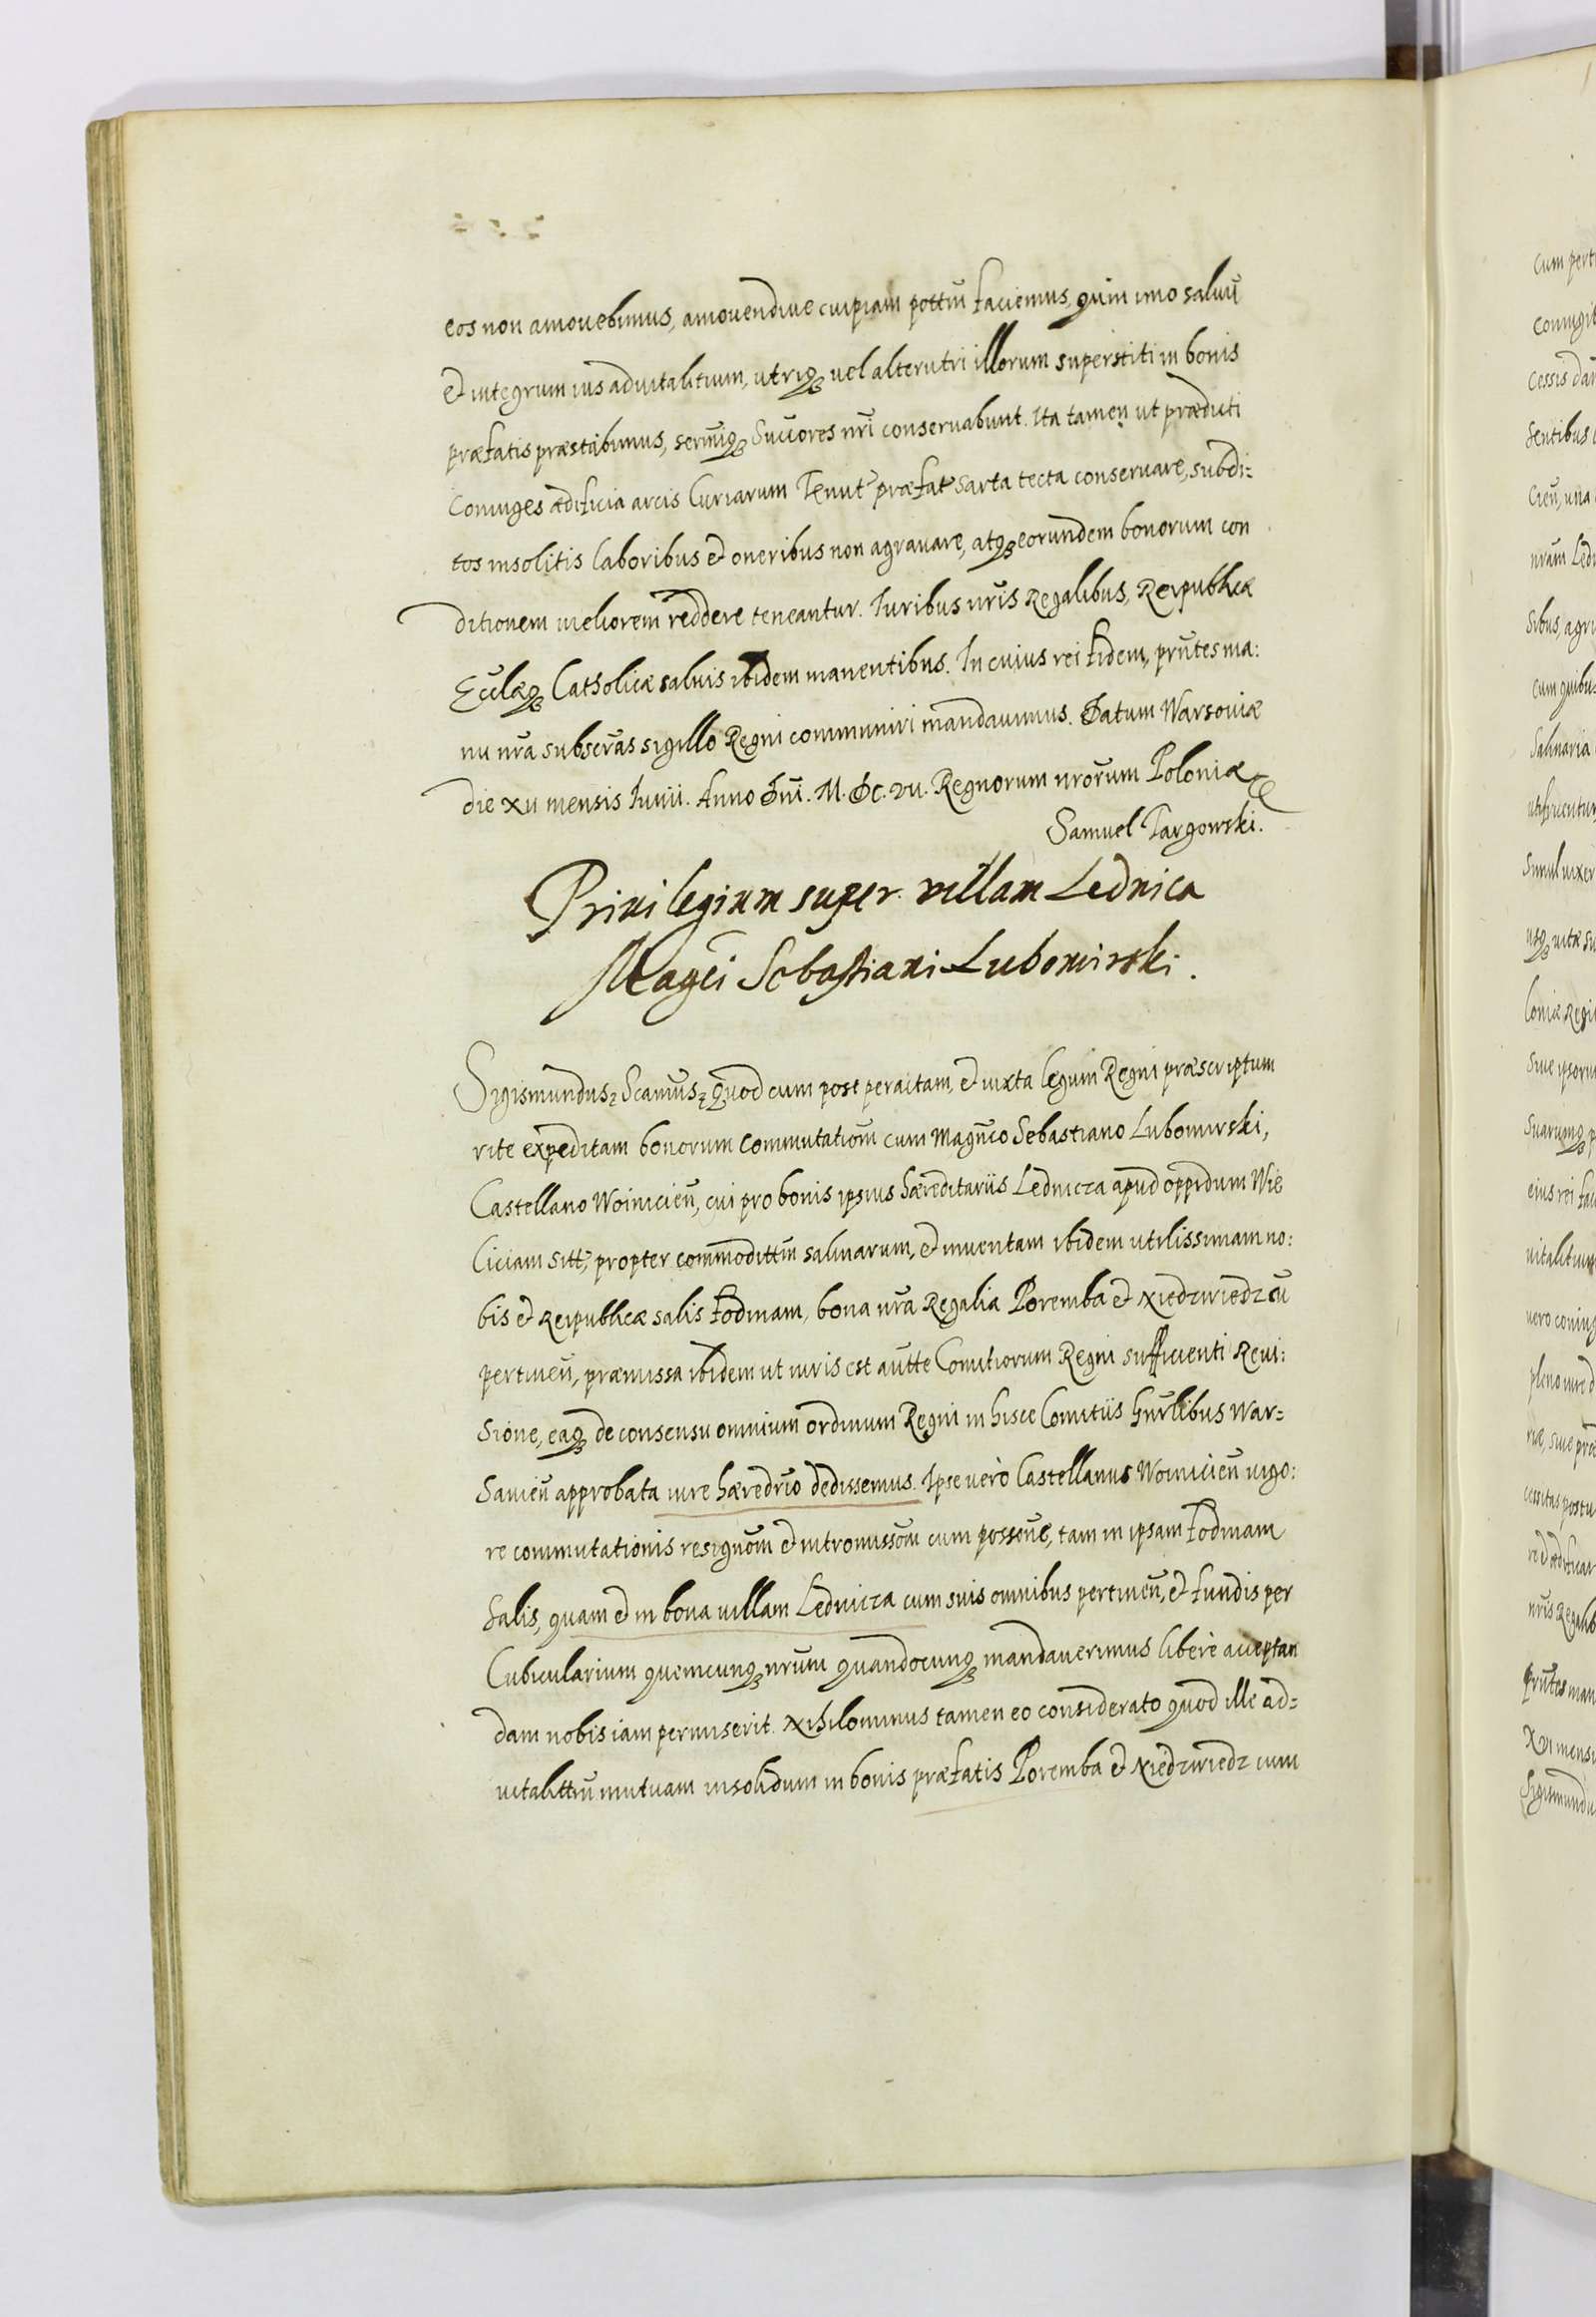 eos non amovebimus, amovendive cuipiam pottm̃ faciemus, quin imo salvũ
et integrum ius advitalitium, utriq₃ vel alterutri illorum superstiti in bonis
præfatis præstabimus, sermĩq₃ Succores nr̃i conservabunt. Ita tamen ut prædicti
Coniuges ædificia arcis Curiarum Tenut præfat sarta tecta conservare, subdi:
tos insolitis laboribus et oneribus non agravare, atq₃ eorundem bonorum con
ditionem meliorem reddere teneantur. Iuribus nr̃is Regalibus, Reipublicæ
Ecclæq₃ Catholicæ salvis ibidem manentibus. In cuius rei fidem, prñtes ma:
nu nr̃a subscr̃as sigillo Regni communiri mandavimus. Datum Warsoviæ
die XII mensis Iunii. Anno Dñi. M. Dc. VII. Regnorum nr̃orum Poloniæ
Samuel Targowski.
Privilegium super villam Lednica
Magci Sebastiani Lubomirski.
Sigismundus Scamus Quod cum post peractam, et iuxta legum Regni præscriptum
rite expeditam bonorum commutatiom̃ cum Magn̄co Sebastiano Lubomirski,
Castellano Woinicien̄, cui pro bonis ipsius hæreditariis Lednicza apud oppidum Wie
liciam sitt, propter commodittm̃ salinarum, et inventam ibidem utilissimam no:
bis et Reipublicæ salis fodinam, bona nr̃a Regalia Poremba et Niedzwiedz cũ
pertinen̄, præmissa ibidem ut iuris est autte Comitiorum Regni sufficienti Revi:
sione, eaq₃ de consensu omnium ordinum Regni in hisce Comitiis Gn̄rlibus War:
savien̄ approbata iure hæredrio dedissemus. Ipse vero Castellanus Woinicien̄ vigo:
re commutationis resignom̃ et intromissom̃ cum possone, tam in ipsam fodinam
Salis, quam et in bona villam Lednicza cum suis omnibus pertinen̄, et fundis per
Cubicularium quemcunq₃ nr̃um quandocunq₃ mandaverimus libere acceptan
dam nobis iam permiserit. Nihilominus tamen eo considerato quod ille ad:
vitalittm̃ mutuam insolidum in bonis præfatis Poremba et Niedzwiedz cum